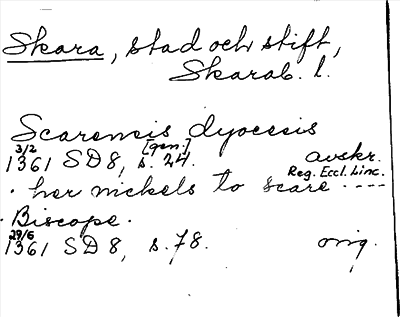 Skara, stad och stift,
Skarab. l.
Scarensis dyocesis
3/2 [gen.]
1361 SD 8, s. 24. avskr.
Reg. Eccl. Linc.
· her nickels to scare ----
· Biscope ·
29/6
1361 SD 8, s. 78. orig.